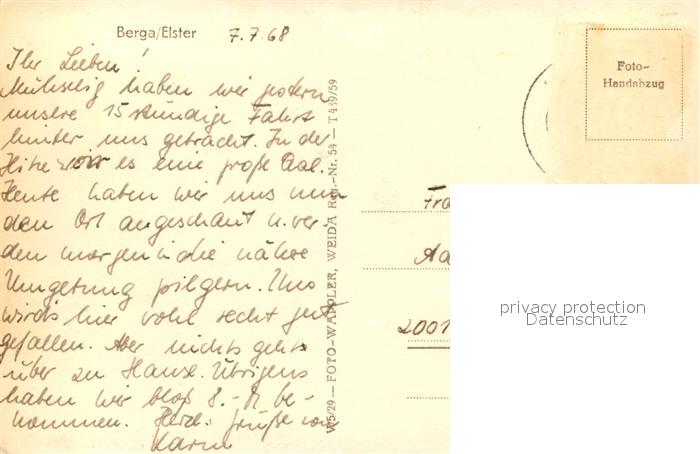 Berga/Elster 7.7.68
Ihr Lieben!
Mühselig haben wir gestern
unsere 15 stündige Fahrt
hinter uns gebracht. In der
Hitze war es eine große Qual.
Heute haben wir uns nun
den Ort angeschaut u. wer-
den morgen in die nähere
Umgebung pilgern. Uns
wird's hier wohl recht gut
gefallen. Aber nichts geht
über zu Hause. Übrigens
haben wir bloß 8.- M be-
kommen. Herzl. Grüße von
Karin
W5/29 — FOTO-WAPPLER, WEIDA Reg.-Nr. 54 — T 439/59
Foto-
Handabzug
Fra
Aa
2001
privacy protection
Datenschutz